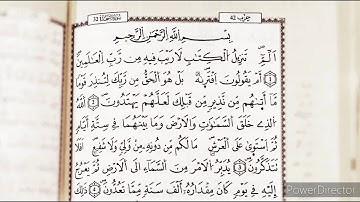 سورة السجدة 32
حزب 42
بِسْمِ اللَّهِ الرَّحْمَٰنِ الرَّحِيمِ
أَلَمِّ تَنزِيلُ الْكِتَٰبِ لَا رَيْبَ فِيهِ مِن رَّبِّ الْعَٰلَمِينَ
أَمْ يَقُولُونَ اَفْتَرَيٰهُ بَلْ هُوَ الْحَقُّ مِن رَّبِّكَ لِتُنذِرَ قَوْماً
مَّا أَتَيٰهُم مِّن نَّذِيرٍ مِّن قَبْلِكَ لَعَلَّهُمْ يَهْتَدُونَ
اَللَّهُ الذِي خَلَقَ السَّمَٰوَٰتِ وَالْأَرْضَ وَمَا بَيْنَهُمَا فِي سِتَّةِ أَيَّامٍ
ثُمَّ اَسْتَوَىٰ عَلَى الْعَرْشِ مَا لَكُم مِّن دُونِهِ مِنْ وَلِيٍّ وَلَا شَفِيعٍ أَفَلَا
تَتَذَكَّرُونَ يُدَبِّرُ الْأَمْرَ مِنَ السَّمَاءِ إِلَى الْأَرْضِ ثُمَّ يَعْرُجُ
إِلَيْهِ فِي يَوْمٍ كَانَ مِقْدَارُهُ أَلْفَ سَنَةٍ مِّمَّا تَعُدُّونَ ذَٰلِكَ
PowerDirector